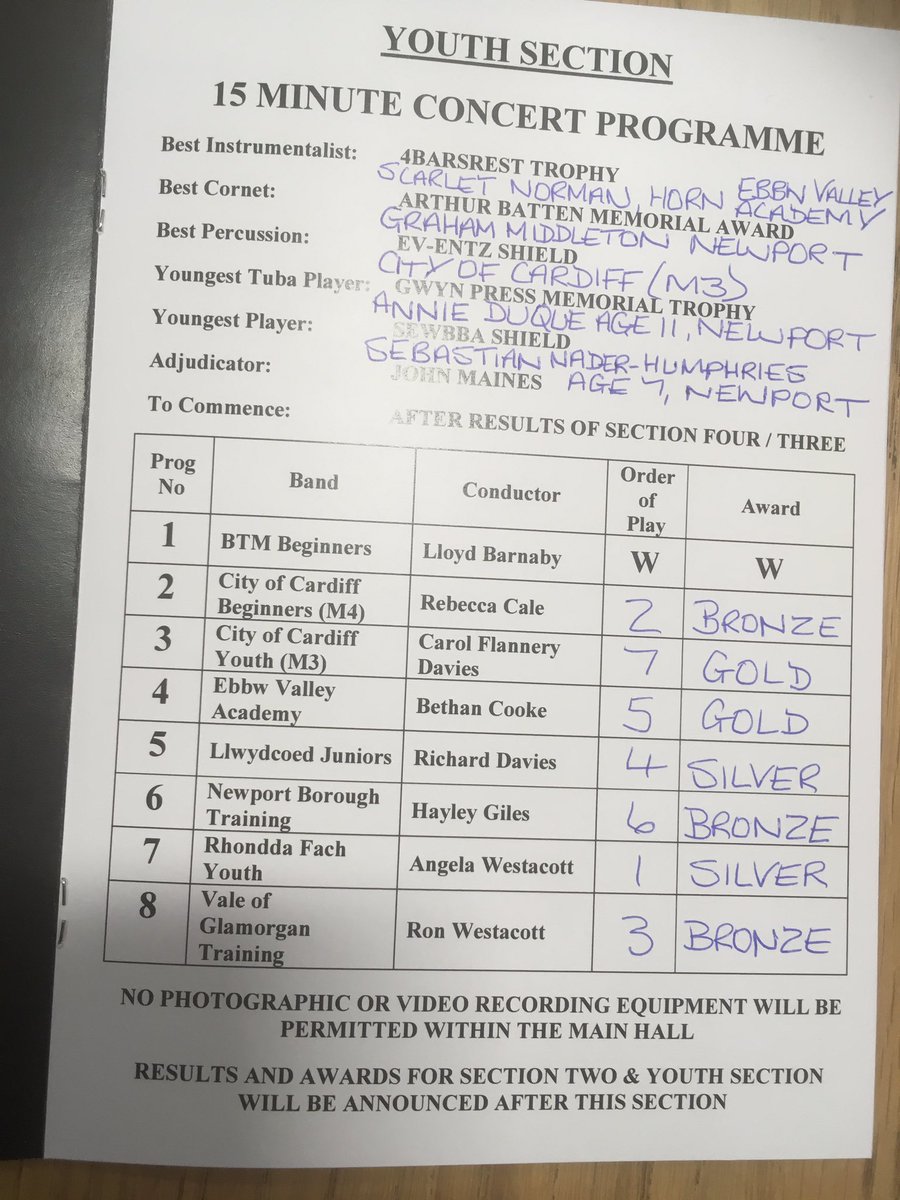 YOUTH SECTION
15 MINUTE CONCERT PROGRAMME
Best Instrumentalist: 4BARSREST TROPHY
SCARLET NORMAN, HORN EBBN VALLEY ACADEMY
Best Cornet: ARTHUR BATTEN MEMORIAL AWARD
GRAHAM MIDDLETON NEWPORT
Best Percussion: EV-ENTZ SHIELD
CITY OF CARDIFF (M3)
Youngest Tuba Player: GWYN PRESS MEMORIAL TROPHY
ANNIE DUQUE AGE 11, NEWPORT
Youngest Player: SEWBBA SHIELD
SEBASTIAN NADER-HUMPHRIES
AGE 7, NEWPORT
Adjudicator: JOHN MAINES
To Commence: AFTER RESULTS OF SECTION FOUR / THREE
Prog No Band Conductor Order of Play Award
1 BTM Beginners Lloyd Barnaby W W
2 City of Cardiff Beginners (M4) Rebecca Cale 2 BRONZE
3 City of Cardiff Youth (M3) Carol Flannery Davies 7 GOLD
4 Ebbw Valley Academy Bethan Cooke 5 GOLD
5 Llwydcoed Juniors Richard Davies 4 SILVER
6 Newport Borough Training Hayley Giles 6 BRONZE
7 Rhondda Fach Youth Angela Westacott 1 SILVER
8 Vale of Glamorgan Training Ron Westacott 3 BRONZE
NO PHOTOGRAPHIC OR VIDEO RECORDING EQUIPMENT WILL BE
PERMITTED WITHIN THE MAIN HALL
RESULTS AND AWARDS FOR SECTION TWO & YOUTH SECTION
WILL BE ANNOUNCED AFTER THIS SECTION